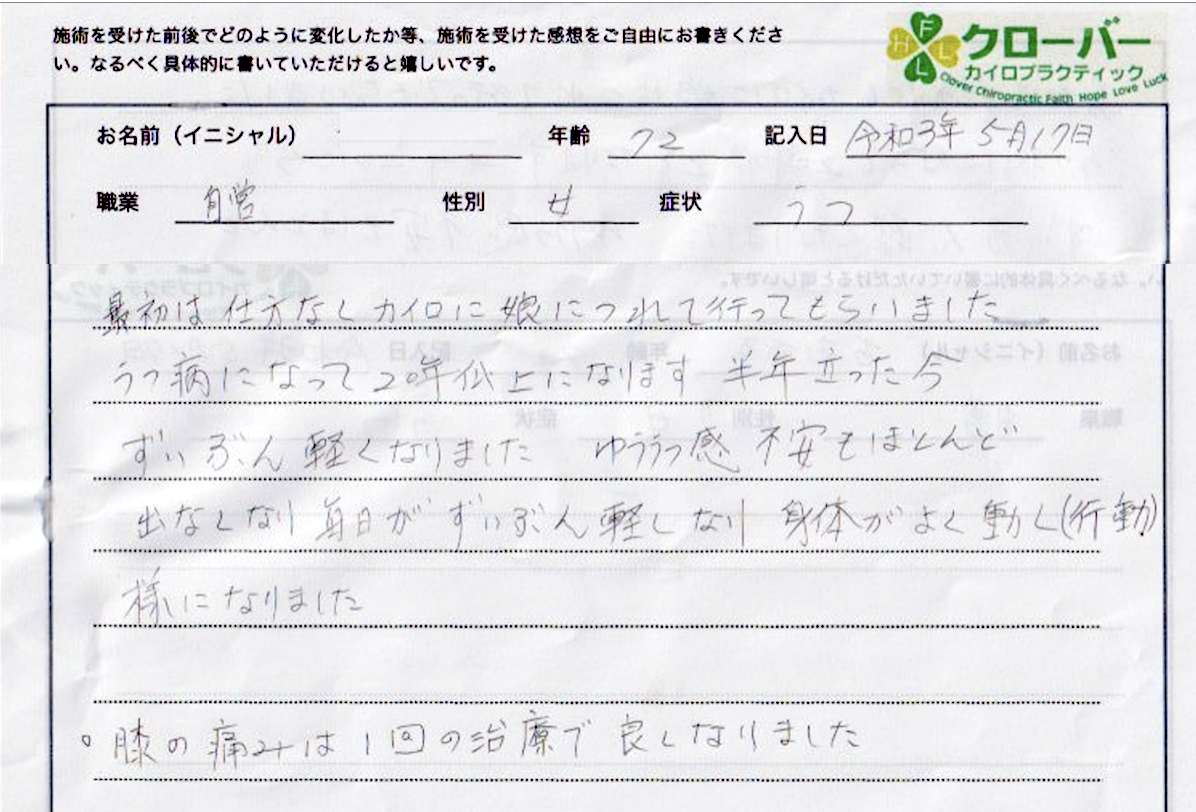 施術を受けた前後でどのように変化したか等、施術を受けた感想をご自由にお書きくださ
い。なるべく具体的に書いていただけると嬉しいです。
F H L L
クローバー
カイロプラクティック
Clover Chiropractic Faith Hope Love Luck
お名前（イニシャル） 年齢 72 記入日 令和3年5月17日
職業 自営 性別 女 症状 うつ
最初は仕方なしカイロに娘につれて行ってもらいました
うつ病になって20年以上になります 半年立った今
ずいぶん軽くなりました ゆううつ感 不安もほとんど
出なくなり毎日がずいぶん軽くなり 身体がよく動く(行動)
様になりました
。膝の痛みは1回の治療で良くなりました